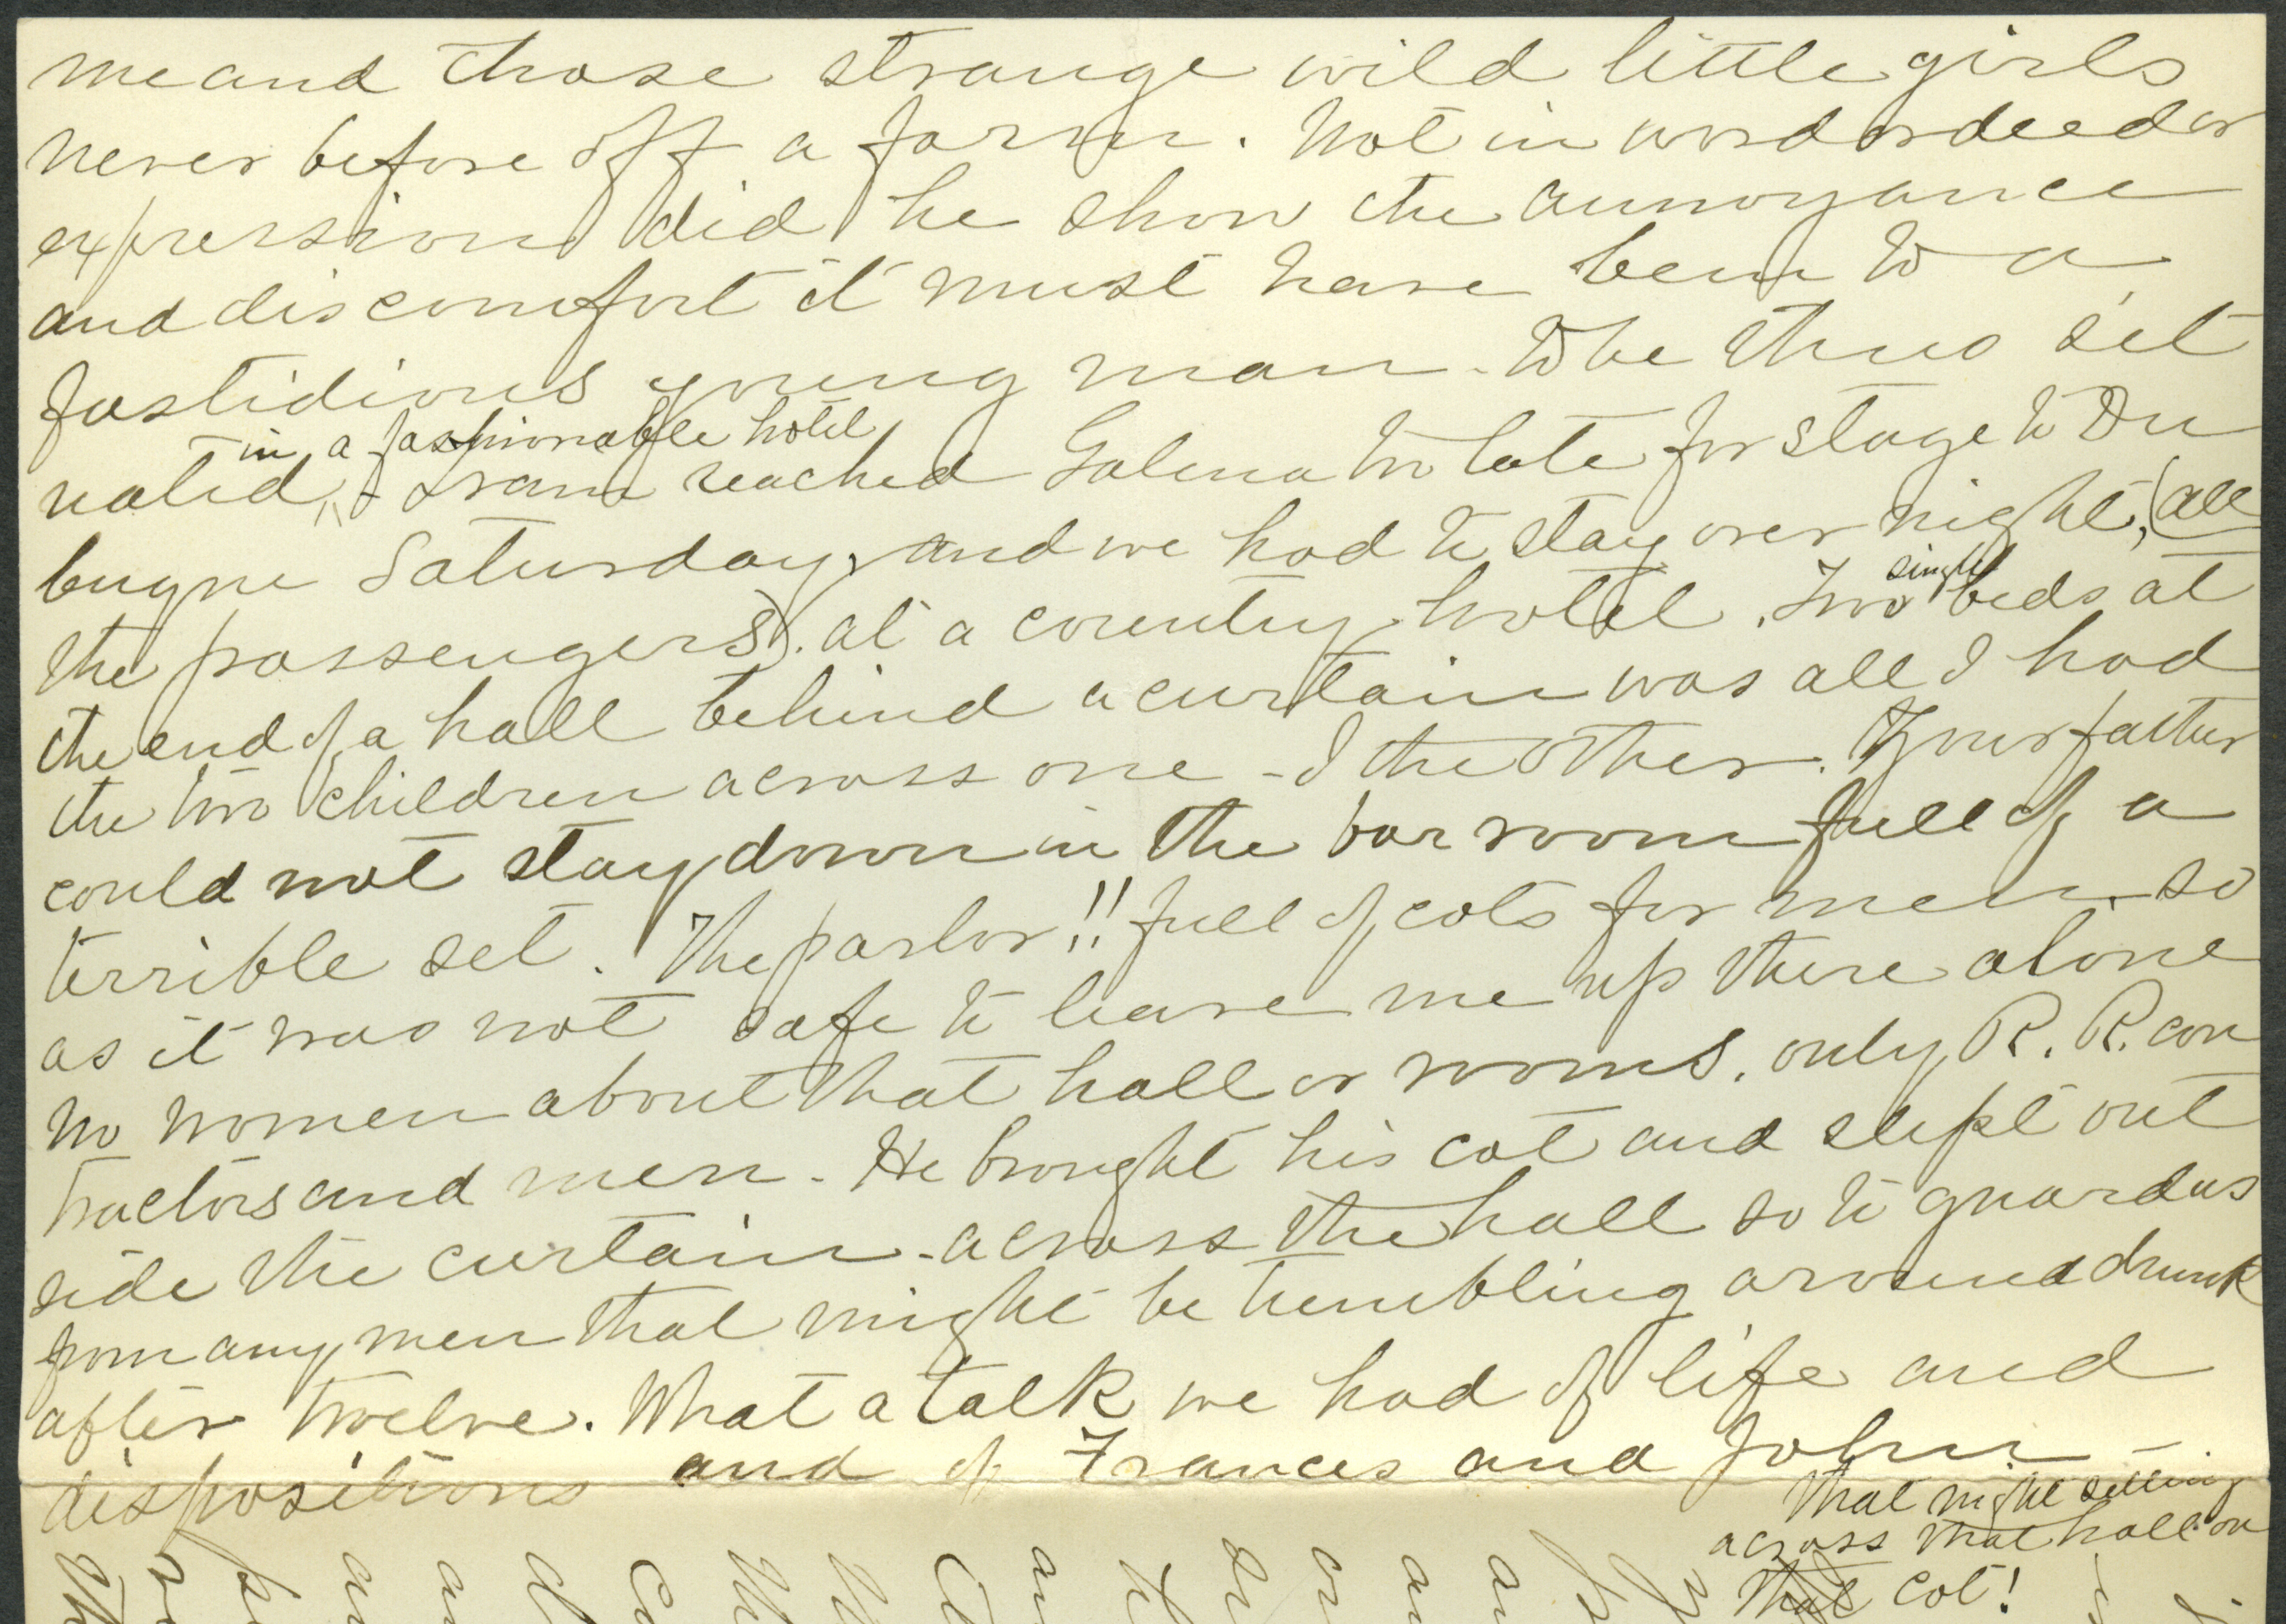 me and those strange wild little girls
never before off a farm. Not in word or deed or
expression did he show the annoyance
and discomfort it must have been to a
fastidious young man. To be thus set
in a fashionable hotel
noted, - Train reached Galena too late for stage to Du
buque Saturday, and we had to stay over night, (all
the passengers). at a country hotel. Two single beds at
the end of a hall behind a curtain was all I had
the two children across one - I the other. Your father
could not stay down in the bar room full of a
terrible set. The parlor!! full of cots for men. so
as it was not safe to leave me up there alone
no women about that hall or rooms. only R. R. con
tractors and men. He brought his cot and slept out
side the curtain - across the hall so to guard us
from any men that might be tumbling around drunk
after twelve. What a talk we had of life and
dispositions and of Frances and John -
That night sitting
across that hall on
that cot!